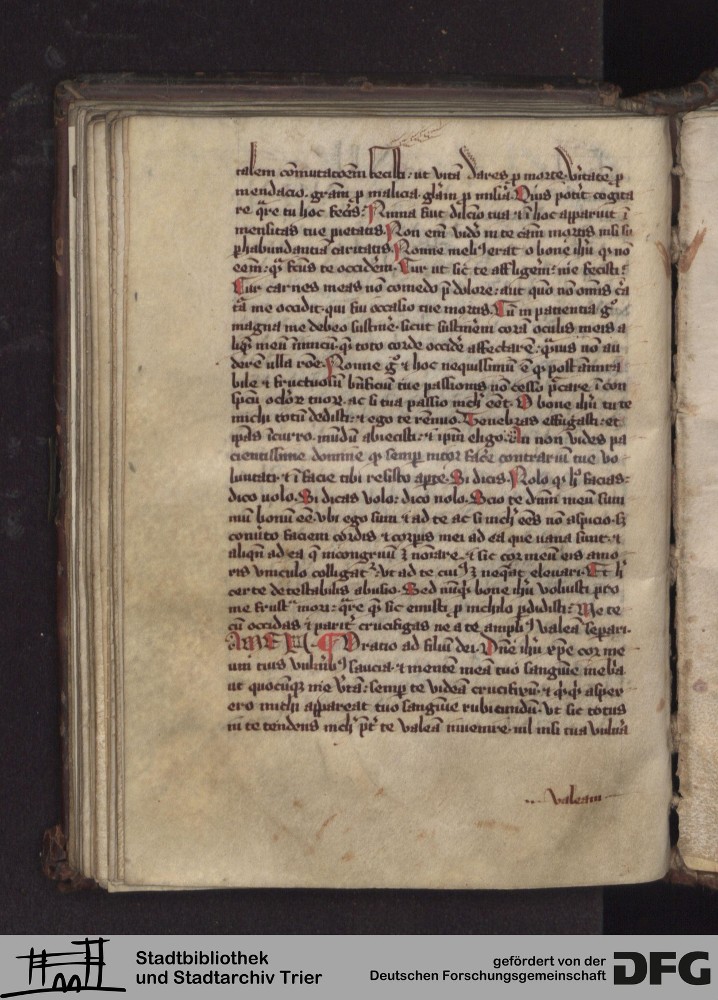 talem cōmutatōem fecisti: ut vitā dares p morte. v̄itatē p
mendacio. grām p malicia. glām p
re. q̄re tu hoc fecis. Nimia fuit dilc̄io tua i hoc apparuit ī
mensitas tue pietatis. Non em̄ vido in te cām mortis nisi su
phabundantiā caritatis. Nonne meli9 erat o bone ihū q nō
eēm: q̄ fc̄us te occiderim. Cur ut sic te affligem: me fecisti:
Cur carnes meas nō comedo p̄ dolore: aut quō nō om̄is c̄a
t̄a me occidit. qui fui occasio tue mortis. Cū in patientia g°
magna me debeo sustinē. sicut sustinerem corā oculis meis a
liq̄ meū inimicū. q̄ toto corde occidē affectarē: nō au
derē ulla rōe. Nonne g° hoc nequissimū ē q post ammira
bile et fructuosū bn̄ficiū tue passionis nō cesso pccare. ī con
spcū oclōr tuor. ac si tua passio mch eēt. O bone ihū tu te
michi totū dedisti: et ego te rēnuo. Tenebras effugasti: et
ip̄as īcurro. mūdū abiecisti: et ip̄m eligo. An non vides pa
cientissime domine q semp nitor facē contrariū tue vo
luntati. et ī facie tibi resisto apte. Si dicis. Nolo q h facias:
dico uolo. Si dicas volo: dico nolo. Scio te dn̄m meū sum
mū bonū eē. vbi ego sum et ad te ac si mch eēs nō aspicio. sz
conūto faciem cordis et corpis mei ad ea que uana sunt. et
aliqn̄ ad ea q̄ incongruū ē noīare. et sic cor meū eis amo
ris vinculo colligat. Vt ad te neqat eleuari. Et h
certe detestabilis abusio. Sed nūqd bone ihū voluisti pro
me frustra mori: q̄re q̄ sic emisti p nichilo pdidisti: Me te
cū occidas et parit crucifigas ne a te ampli9 valeā separi.
AMEN. Oratio ad filiū dei. Dn̄e ihū xp̄e cor me
um tuis vulnib9 saucia. et mentē meā tuo sanguine inebria
ut quocūqz me v̄tā: semp te videā crucifixū. et q̄cqd asper
ero michi appareat tuo sanguine rubicundū. Vt sic totus
in te tendens mch pt te valeā inuenire. nil nisi tua vulnera
valeam
Stadtbibliothek
und Stadtarchiv Trier
gefördert von der
Deutschen Forschungsgemeinschaft
DFG